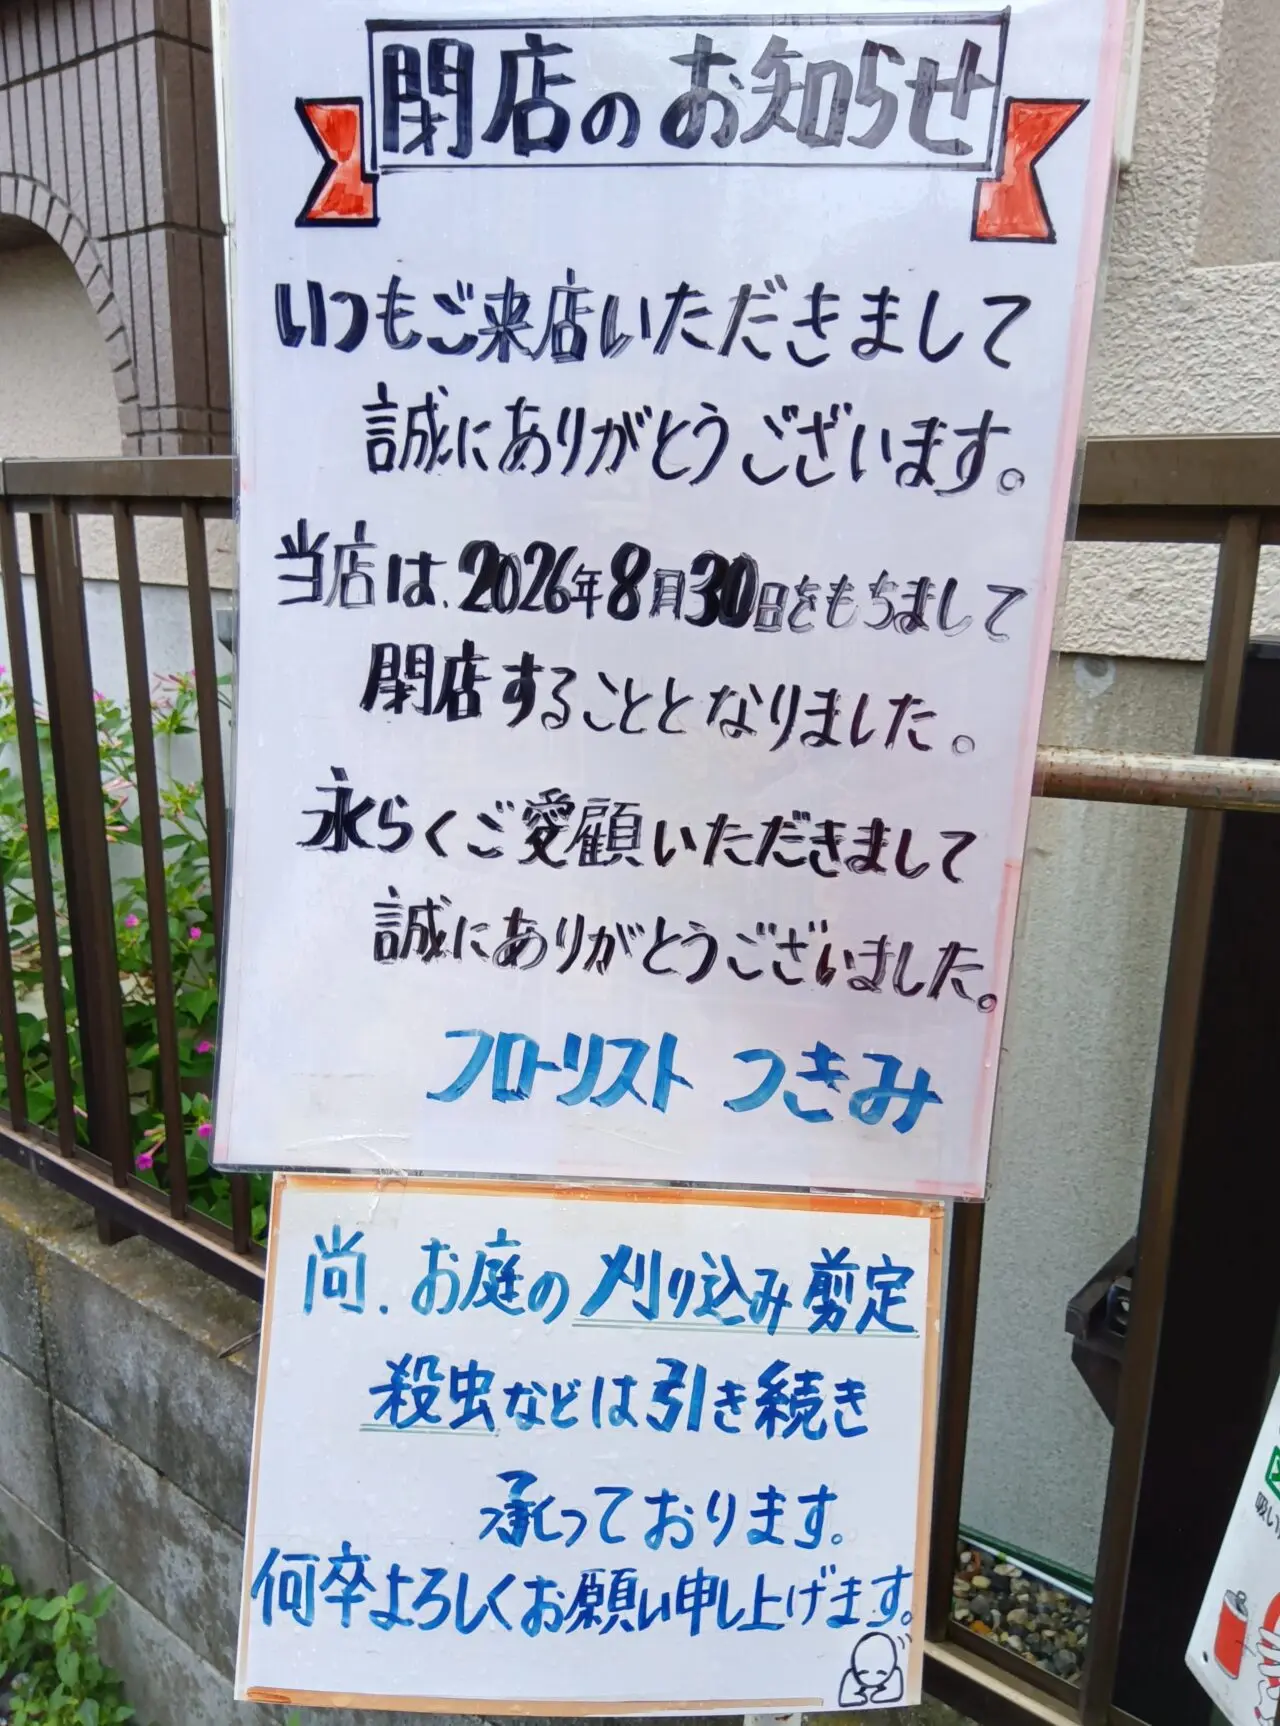 閉店のお知らせ
いつもご来店いただきまして
誠にありがとうございます。
当店は、2026年8月30日をもちまして
閉店することとなりました。
永らくご愛顧いただきまして
誠にありがとうございました。
フローリスト つきみ
尚、お庭の刈り込み剪定
殺虫などは引き続き
承っております。
何卒よろしくお願い申し上げます。
吸い